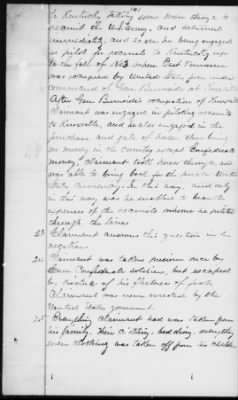 to Kentucky taking some men through to
recruit the U.S. army and delivered
immediately, and so on being engaged
as pilot for recruits to Kentucky up
to the fall of 1863 when East Tennessee
was occupied by United States forces under
command of Gen Burnside at Knoxville
After Gen Burnside's occupation of Knoxville
claimant was engaged in piloting recruits
to Knoxville, and he also engaged in the
purchase and sale of horses, there being
no money in the country except Confederate
money, claimant took horses through and
was able to bring back for the people United
States Currency. In this way, and only
in this way was he enabled to bear the
expenses of the recruits whom he piloted
through the lines
23 Claimant answers this question in the
negative.
24 Claimant was taken prisoner once by
Confederate soldiers, but escaped
by virtue of his fleetness of foot.
Claimant was never arrested by the
United States government.
25 Everything claimant had was taken from
his family, their clothing, bedding everything
even clothing was taken off from his children